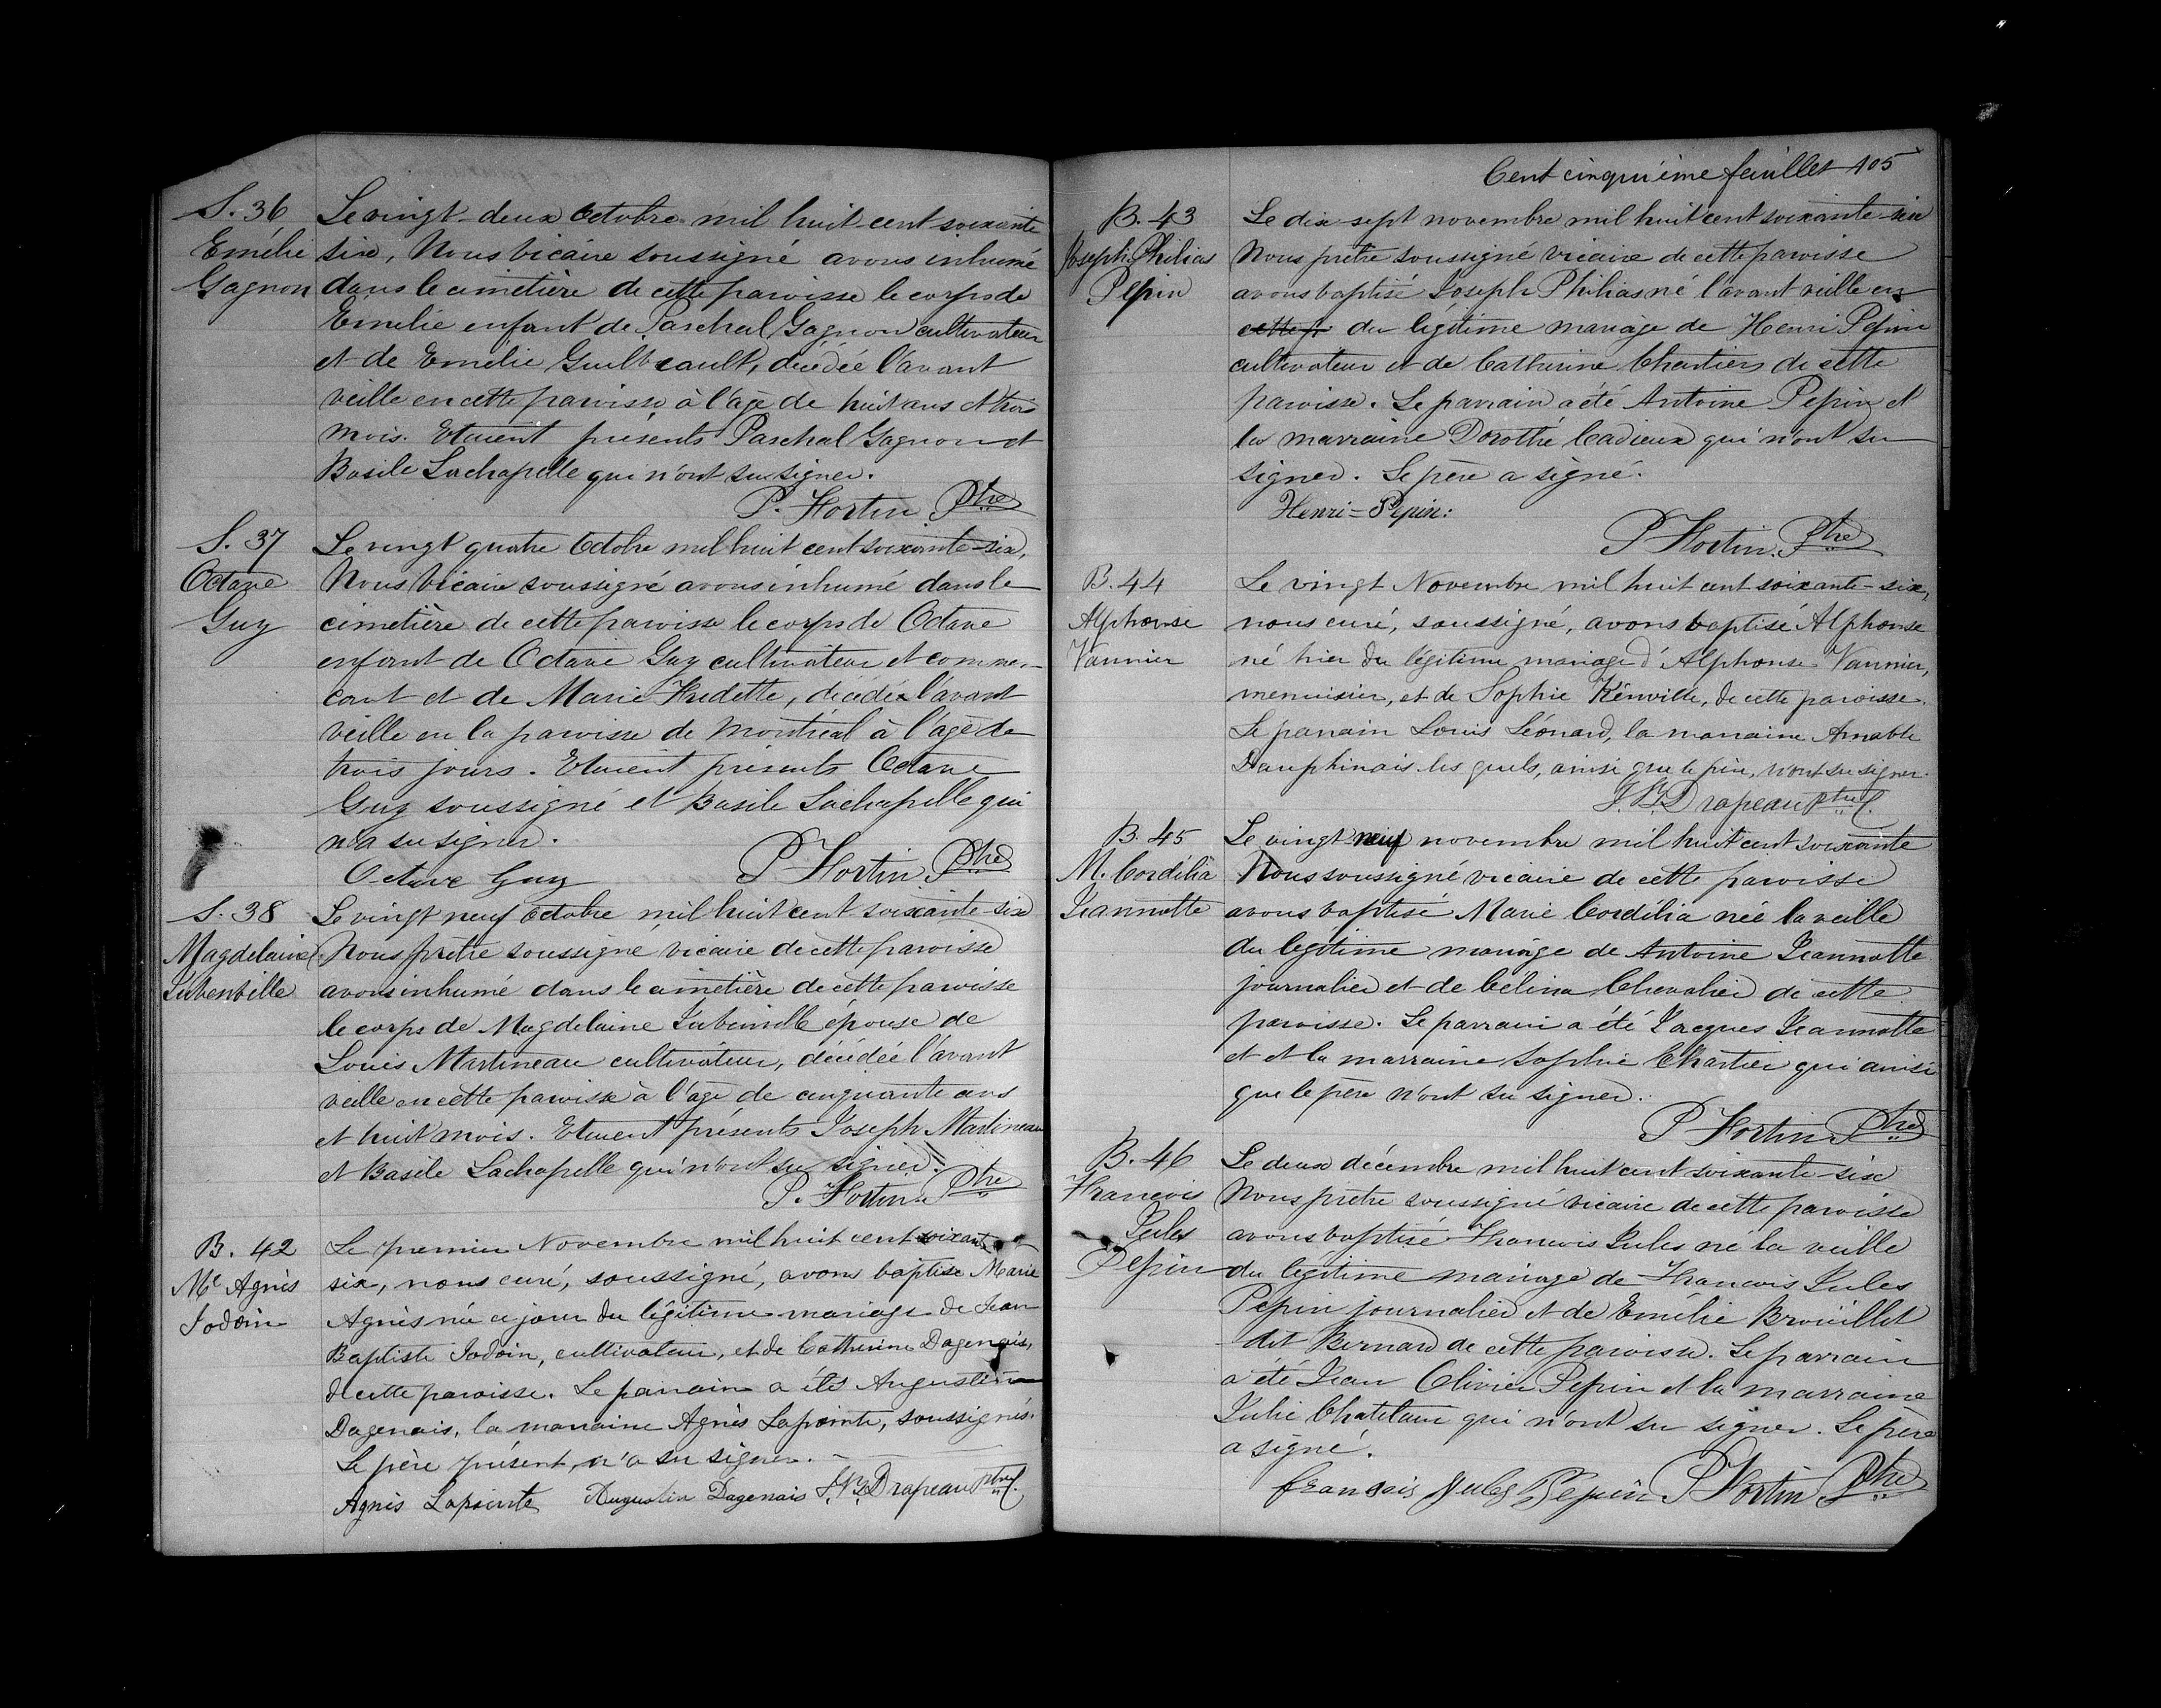 S. 36
Emélie
Gagnon
Le vingt-deux Octobre mil huit-cent soixante
six, Nous vicaire soussigné avons inhumé
dans le cimetière de cette paroisse le corps de
Emelie enfant de Paschal Gagnon cultivateur
et de Emélie Guilbeault, décédée l'avant
veille en cette paroisse à l'âge de huit ans et trois
mois. Etaient présents Paschal Gagnon et
Basile Lachapelle qui n'ont su signer.
P. Fortin Ptre
S. 37
Octave
Guy
Le vingt quatre Octobre mil huit cent soixante-six,
Nous Vicaire soussigné avons inhumé dans le
cimetière de cette paroisse le corps de Octave
enfant de Octave Guy cultivateur et commer-
cant et de Marie Fredette, décédé l'avant
veille en la paroisse de Montréal à l'age de
trois jours. Etaient présents Octave
Guy soussigné et Basile Lachapelle qui
n'a su signer.
Octave Guy P Fortin Ptre
S. 38
Magdelaine
Jubenville
Le vingt neuf Octobre mil huit cent soixante-six
Nous prêtre soussigné vicaire de cette paroisse
avons inhumé dans le cimetière de cette paroisse
le corps de Magdelaine Jubinville épouse de
Louis Martineau cultivateur, décédée l'avant
veille en cette paroisse à l'age de cinquante ans
et huit mois. Etaient présents Joseph Martineau
et Basile Lachapelle qui n'ont su signer.
P. Fortin Ptre
B. 42
Me Agnès
Jodoin
Le premier Novembre mil huit cent soixante
six, nous curé, soussigné, avons baptisé Marie
Agnès née ce jour du légitime mariage de Jean
Baptiste Jodoin, cultivateur, et de Catherine Dagenais,
de cette paroisse. Le parrain a été Augustin
Dagenais, la marraine Agnès Lapointe, soussignés.
Le père présent, n'a su signer.
Agnès Lapointe Augustin Dagenais J.Bte Drapeau Ptre C.
Cent cinquième feuillet 105
B. 43
Joseph Philias
Pepin
Le dix-sept novembre mil huit cent soixante-six
Nous prêtre soussigné vicaire de cette paroisse
avons baptisé Joseph Philias né l'avant veille en
cette p du légitime mariage de Henri Pepin
cultivateur et de Catherine Chartier de cette
paroisse. Le parrain a été Antoine Pepin et
la marraine Dorothé Cadieux qui n'ont su
signer. Le père a signé.
Henri = Pepin:
P Fortin Ptre
B. 44
Alphonse
Vannier
Le vingt Novembre mil huit cent soixante-six,
nous curé, soussigné, avons baptisé Alphonse
né hier du légitime mariage d'Alphonse Vannier,
menuisier, et de Sophie Kénville, de cette paroisse.
Le parrain Louis Léonard, la marraine Amable
Dauphinais lesquels, ainsi que le père, n'ont su signer.
J. Bte Drapeau Ptre C.
B. 45
M. Cordélia
Jeannotte
Le vingt neuf novembre mil huit cent soixante
Nous soussigné vicaire de cette paroisse
avons baptisé Marie Cordélia née la veille
du legitime mariage de Antoine Jeannotte
journalier et de Célina Chevalier de cette
paroisse. Le parrain a été Jacques Jeannotte
et et la marraine Sophie Chartier qui ainsi
que le père n'ont su signer.
P Fortin Ptre
B. 46
Francois
Jules
Pepin
Le deux décembre mil huit cent soixante-six
Nous prêtre soussigné vicaire de cette paroisse
avons baptisé Francois Jules né la veille
du légitime mariage de Francois Jules
Pepin journalier et de Emélie Brouillet
dit Bernard de cette paroisse. Le parrain
a été Jean Olivier Pepin et la marraine
Julie Chatelain qui n'ont su signer. Le père
a signé.
francois Jules Pepin P Fortin Ptre